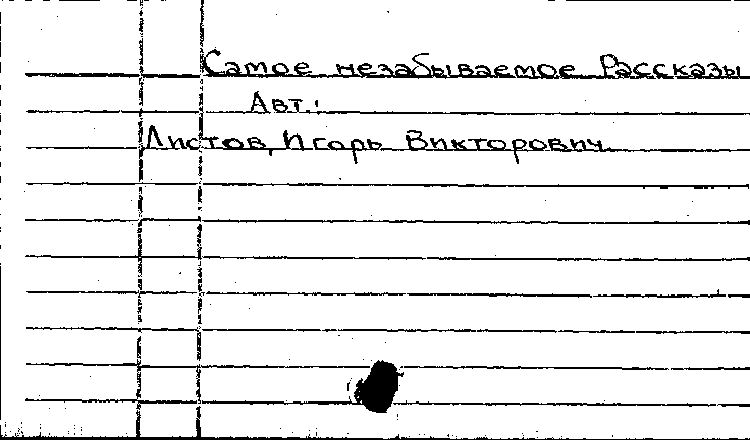 Самое незабываемое Рассказы
Авт.:
Листов, Игорь Викторович.